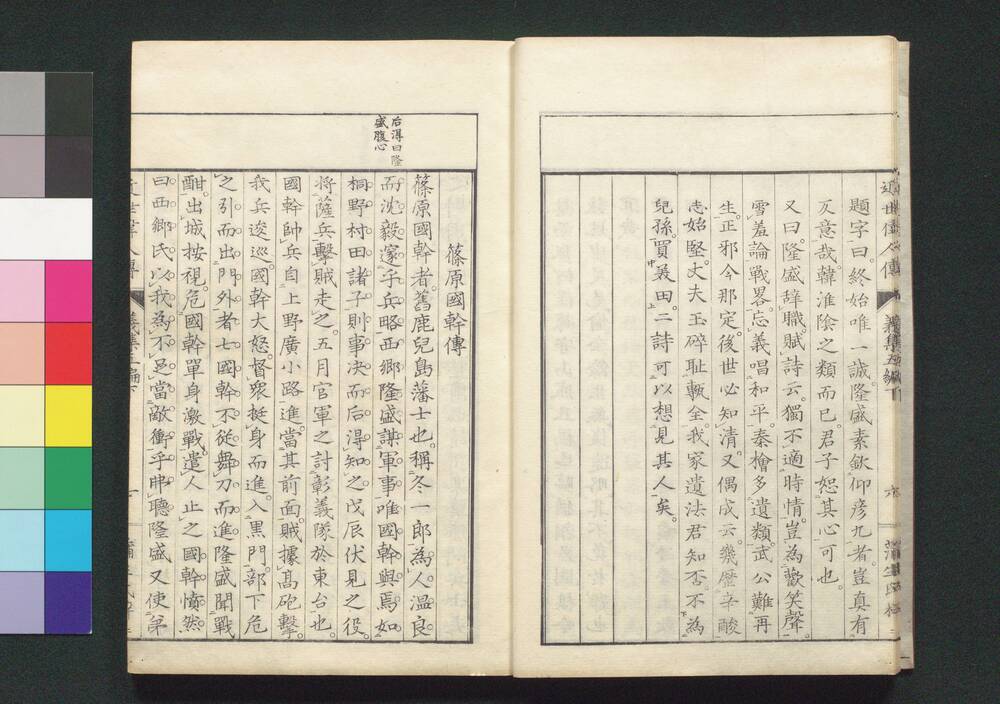 近世偉人傳
題字曰。終始唯一誠。隆盛素欽仰彦九者豈真有
又曰。隆盛辞職。賦詩云。獨不適時情。豈為歡笑聲。
雪羞論戰畧。忘義唱和平。秦檜多遺類。武公難再
生。正邪今那定。後世必知清。又偶成云。幾歴辛酸
志始堅。丈夫玉碎耻甎全。我家遺法君知否。不為
兒孫買美田。二詩可以想見其人矣。
后得曰隆
盛腹心
篠原國幹傳
篠原國幹者。舊鹿兒島藩士也。稱冬一郎。為人温良
而沈毅。邃乎兵略。西郷隆盛謀軍事。唯國幹與焉。如
桐野村田諸子。則事决而后得知之。戊辰伏見之役。
將薩兵擊賊走之。五月官軍之討彰義隊於東台也。
國幹帥兵自上野廣小路進。當其前面。賊據高砲擊。
我兵逡巡。國幹大怒。督衆挺身而進。入黒門。部下危
之引而出門外者七。國幹不從。舞刀而進。隆盛聞戰
酣。出城按視。危國幹單身激戰。遣人止之。國幹憤然
曰。西郷氏以我為不足當敵衝乎。弗聽。隆盛又使弟